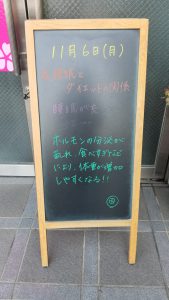 11月6日(月)
と
ダイエットの関係
睡眠が
ホルモンの分泌が
乱れ、食べすぎなど
により、体重が増加
しやすくなる!!